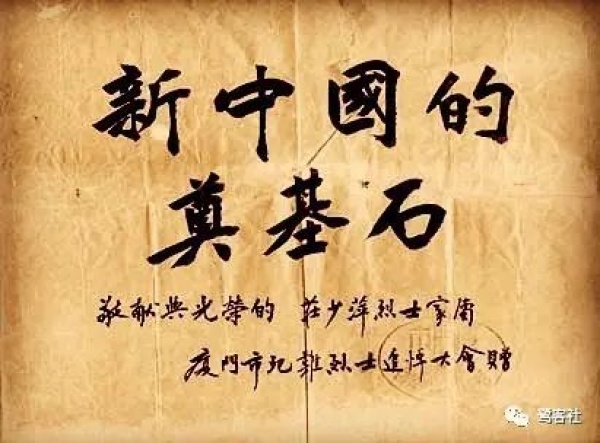 新中國的
奠基石
敬献與光榮的 莊少萍烈士家屬
廈門市死難烈士追悼大會贈
鹭客社